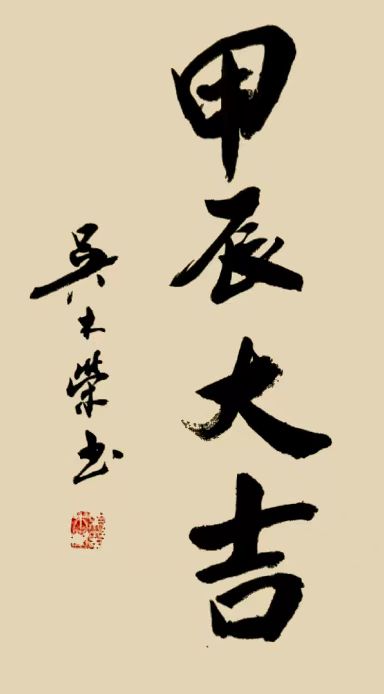 甲辰大吉
吴木荣书